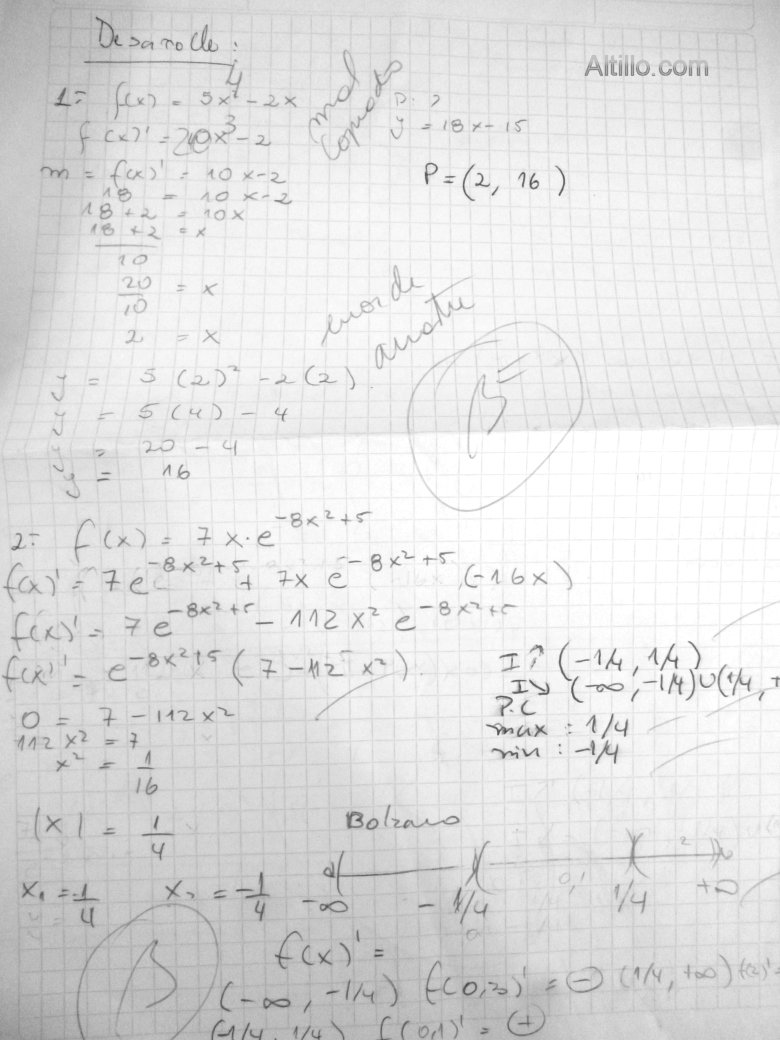 Desarrollo:
Altillo.com
1= f(x) = 5x⁴ - 2x
mal
copiado
y = 18x - 15
f(x)' = 20x³ - 2
m = f(x)' = 10x - 2
P = (2, 16)
18 = 10x - 2
18 + 2 = 10x
18 + 2 = x
10
20 = x
10
2 = x
error de
arrastre
B
y = 5(2)² - 2(2)
y = 5(4) - 4
y = 20 - 4
y = 16
2= f(x) = 7x·e^(-8x²+5)
f(x)' = 7e^(-8x²+5) + 7x e^(-8x²+5) (-16x)
f(x)' = 7e^(-8x²+5) - 112x² e^(-8x²+5)
f(x)' = e^(-8x²+5) (7 - 112x²)
I↗ (-1/4, 1/4)
I↘ (-∞, -1/4)∪(1/4, +
P.C
0 = 7 - 112x²
max : 1/4
112x² = 7
min : -1/4
x² = 1/16
|x| = 1/4
Bolzano
x₁ = 1/4 x₂ = -1/4
-∞ -1/4 0,1 1/4 2 +∞
B
f(x)' =
(-∞, -1/4) f(0,3)' = ⊖ (1/4, +∞) f(2)' =
(-1/4, 1/4) f(0,1)' = ⊕